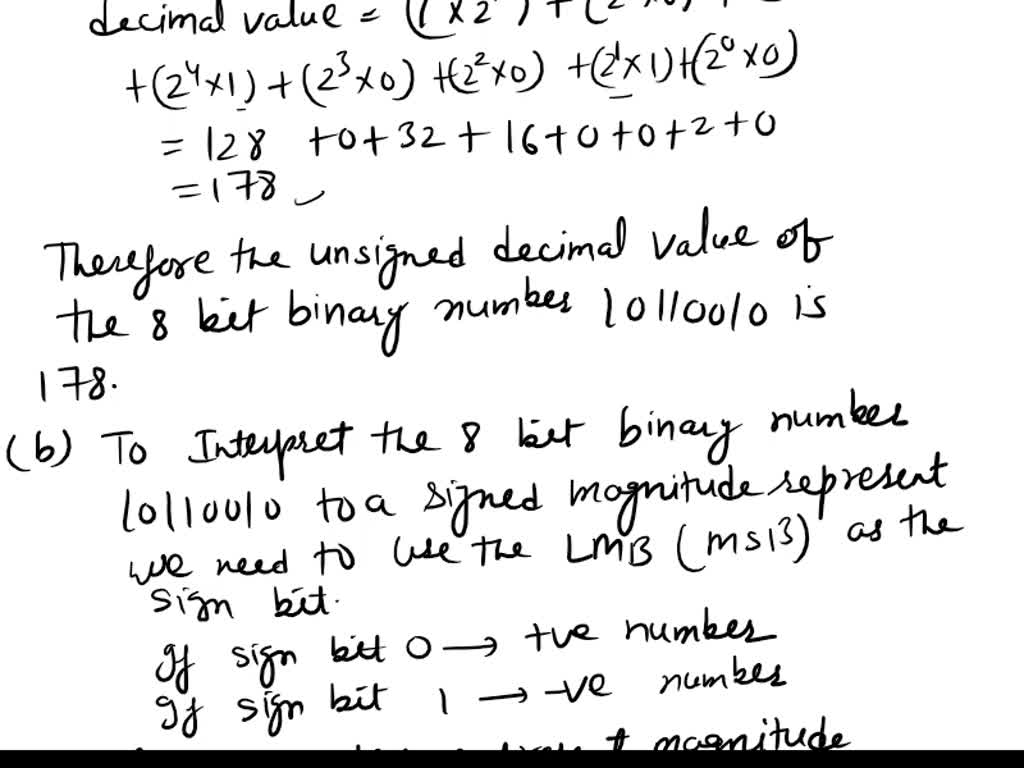 decimal value = (1 × 2 ) + (2 ×0) +
+(2⁴×1) + (2³×0) +(2²×0) +(2¹×1)+(2⁰×0)
= 128 +0+32+16+0+0+2+0
=178
Therefore the unsigned decimal value of
the 8 bit binary number 10110010 is
178.
(b) To Interpret the 8 bit binary number
10110010 to a signed magnitude represent
we need to use the LMB (MSB) as the
sign bit.
If sign bit 0 → +ve number
If sign bit 1 → -ve number
magnitude